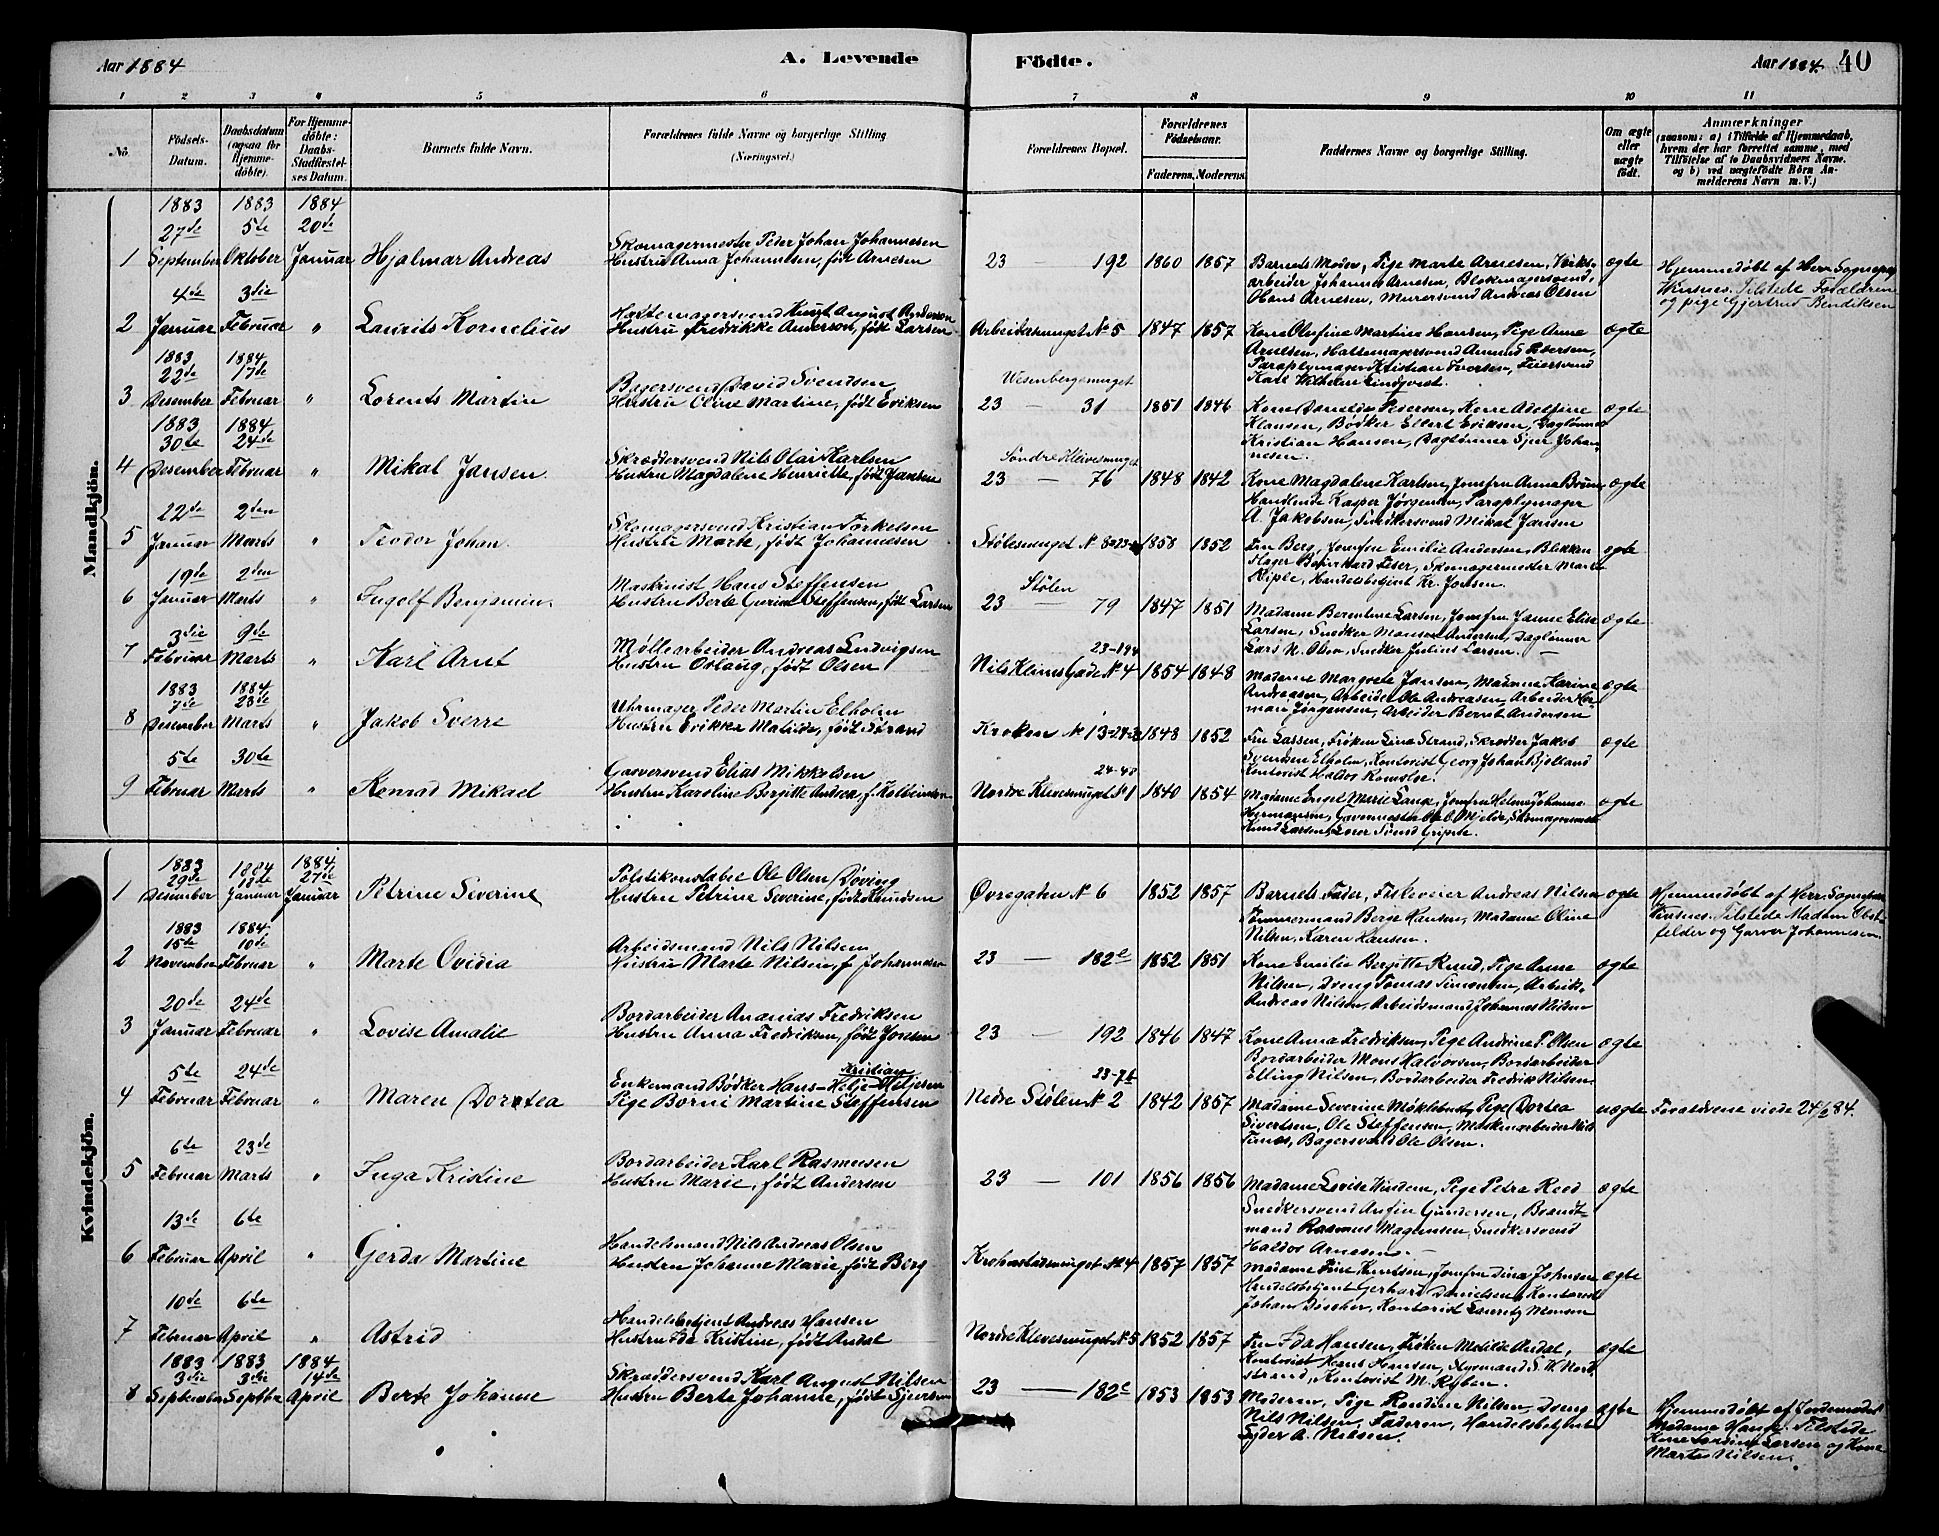 Aar 1884
A. Levende
Födte.
Aar 1884.
40
1 2 3 4 5 6 7 8 9 10 11
No
Födsels-Datum.
Daabsdatum (ogsaa for Hjemme-döbte).
For Hjemme-döbte: Daabs-Stadfæstel-ses Datum.
Barnets fulde Navn.
Forældrenes fulde Navne og borgerlige Stilling (Næringsvei.)
Forældrenes Bopæl.
Forældrenes Födselsaar.
Faderens. Moderens.
Faddernes Navne og borgerlige Stilling.
Om ægte eller uægte födt.
Anmærkninger
(saasom: a) i Tilfælde af Hjemmedaab, hvem der har forrettet samme, med Tilföielse af to Daabsvidners Navne. og b) ved uægtefödte Börn An-melderens Navn m. V.)
Mandkjön.
1883 1883 1884
27de 5te 20de
1 September Oktober Januar Hjalmar Andreas
Skomagermester Peder Johan Johannesen
Hustru Anna Johannesen, født Arnesen
23 — 192 1860 1857
Barnets Moder, Pige Marte Arnesen,
arbeider Johannes Arnesen, Blokmagersvend,
Olans Arnesen, Murersvend Andreas Olsen
ægte
Hjemmedøbt af Herr Sognepr.
Tilstede Forældrene
og pige Gjertrud Bendiksen
4de 3die
2 Januar Februar " Laurits Kornelius
Hattemagersvend Knut August Anderson
Hustru Fredrikke Anderson, født Larsen
Arbeidersmuget No 5 1847 1857
Kone Olufine Martine Hansen, Pige Anne
Arnesen, Hattemagersvend Amund Pedersen,
Paraplymager Kristian Iversen, Feiersvend
Karl Vilhelm Lindqvist.
ægte
1883 1884
22de 17de
3 Desember Februar " Lorents Martin
Bagersvend David Svendsen
Hustru Oline Martine, født Eriksen
Wesenbergsmuget
23 — 31 1851 1846
Kone Pedersen, Kone Adelfine
Klausen, Bødker Ellert Eriksen, Daglønner
Kristian Hansen, Daglønner Sjur Johan-
nesen.
ægte
1883 1884
30te 24de
4 Desember Februar " Mikal Jansen
Skræddersvend Nils Olai Karlsen
Hustru Magdalene Henriette, født Jansen
Søndre Kleivesmuget
23 — 76 1848 1842
Kone Magdalene Karlsen, Jomfru Anna Bruun,
Handlende Kasper Jørgensen, Paraplymager
A. Jakobsen, Snedkersvend Mikal Jansen
ægte
22de 2den
5 Januar Marts " Teodor Johan
Skomagersvend Kristian Torkelsen
Hustru Marte, født Johannesen
Stølesmuget No 8 1858 1852
Fru Berg, Jomfru Emilie Andersen, Blikken-
slager Feser, Skomagermester
Kiple, Handelsbetjent Kr. Jonsen.
ægte
19de 2den
6 Januar Marts " Ingolf Benjamin
Maskinist Hans Steffensen
Hustru Berte Gurine Steffensen, født Larsen
Stølen
23 — 79 1847 1851
Madame Berentine Larsen, Jomfru Janne Elise
Larsen, Snedker Monsen Andersen, Daglønner
Lars N. Olsen, Snedker Julius Larsen. —
ægte
3die 9de
7 Februar Marts " Karl Arnt
Møllearbeider Andreas Ludvigsen
Hustru Oslaug, født Olsen
23-194
Nils Klims Gade No 4 1854 1848
Madame Margrete Jansen, Madame Karine
Andreasen, Arbeider Ole Andreasen, Arbeider Her-
man Jørgensen, Arbeider Bernt Andersen
ægte
1883 1884
7de 23de
8 Desember Marts " Jakob Sverre
Uhrmager Peder Martin Elholm
Hustru Erikka Matilde, født Strand
Kroken No 13 1848 1852
Fru Lassen, Frøken Lina Strand, Skrædder Jakob
Svendsen Elholm, Kontorist Georg Johan Bjelland
Kontorist Haldor Romsloe.
ægte
5te 30te
9 Februar Marts " Konrad Mikael
Garversvend Elias Mikkelsen
Hustru Karoline Bergitte Andrea, f. Kolbeinsen
24-48
Nordre Klevesmuget No 1 1840 1854
Madame Engel Marie Lange, Jomfru Helene Johanne
Hermansen, Garvermester O. Mjelde, Skomagersvend
Knud Larsen, Lærer Svend Gripne.
ægte
Kvindekjön.
1883 1884 1884
29de 13de 27de
1 Desember Januar Januar Petrine Severine
Politikonstabel Ole Olsen Døving
Hustru Petrine Severine, født Knudsen
Øvregaten No 6 1852 1857
Barnets Fader, Fiskeveier Andreas Nilsen
Tømmermand Berge Hansen, Madame Oline
Nilsen, Karen Hansen.
ægte
Hjemmedøbt af Herr Sognepr.
Tilstede Madam Obst-
felder og Garver Johannesen.
1883 1884
15de 10de
2 November Februar " Marte Ovidia
Arbeidsmand Nils Nilsen
Hustru Marte Nilsen, f. Johannesen
23 — 182e 1852 1851
Kone Emilie Bergitte Knud, Pige Anne
Nilsen, Dreng Tomas Simonsen, Arbeidsm.
Andreas Nilsen, Arbeidsmand Johannes Nilsen
ægte
20de 24de
3 Januar Februar " Lovise Amalie
Bordarbeider Ananias Fredriksen
Hustru Anna Fredriksen, født Jonsen
23 — 192 1846 1847
Kone Anna Fredriksen, Pige Andrine P. Olsen
Bordarbeider Mons Halvorsen, Bordarbeider
Elling Nilsen, Bordarbeider Fredrik Nilsen
ægte
5te 24de
4 Februar Februar " Maren Dortea
Kristian
Enkemand Bødker Hans Hilje Hiljesen
Pige Borni Martine Steffensen
Nedre Stølen No 2 1842 1857
Madame Severine Møklebust, Pige Dortea
Sivertsen, Ole Steffensen, Maskinarbeider Nils
Bagersvend Ole Olsen.
uægte
Forældrene viede 24/2 84.
6te 23de
5 Februar Marts " Inga Kristine
Bordarbeider Karl Rasmusen
Hustru Marie, født Andersen
23 — 101 1856 1856
Madame Lovise Pige Petra Reed
Snedkersvend Anfin Gundersen, Brandt-
mand Rasmus Magnusen, Snedkersvend
Haldor Arnesen. —
ægte
13de 6te
6 Februar April " Gerda Martine
Handelsmand Nils Andreas Olsen
Hustru Johanne Marie, født Berg
Krohnstadsmuget No 4 1857 1857
Madame Tine Knutsen, Jomfru Dina Johnsen
Handelsbetjent Gerhard Danielsen, Kontorist
Johan Discher, Kontorist Lauritz Monsen
ægte
10de 6te
7 Februar April " Astrid
Handelsbetjent Andreas Hansen
Hustru Ida Kristine, født Andal
Nordre Klevesmuget No 5 1852 1857
Fru Ida Hansen, Frøken Matilde Andal,
Kontorist Hans Hansen, Styrmand S. W. Nord-
strand, Kontorist M. Ryben.
ægte
1883 1883 1884
3die 3die 14de
8 September Septbr April Berte Johanne
Skræddersvend Karl August Nilsen
Hustru Berte Johanne, født Sjursen
23 — 182c 1853 1853
Moderen, Pige Rondine Nilsen, Dreng
Nils Nilsen, Faderen, Handelsbetjent
Syder A. Nilsen
ægte
Hjemmedøbt af Jordemoder
Madame Hauge. Tilstede
Kone Larsen og Kone
Marta Nilsen.